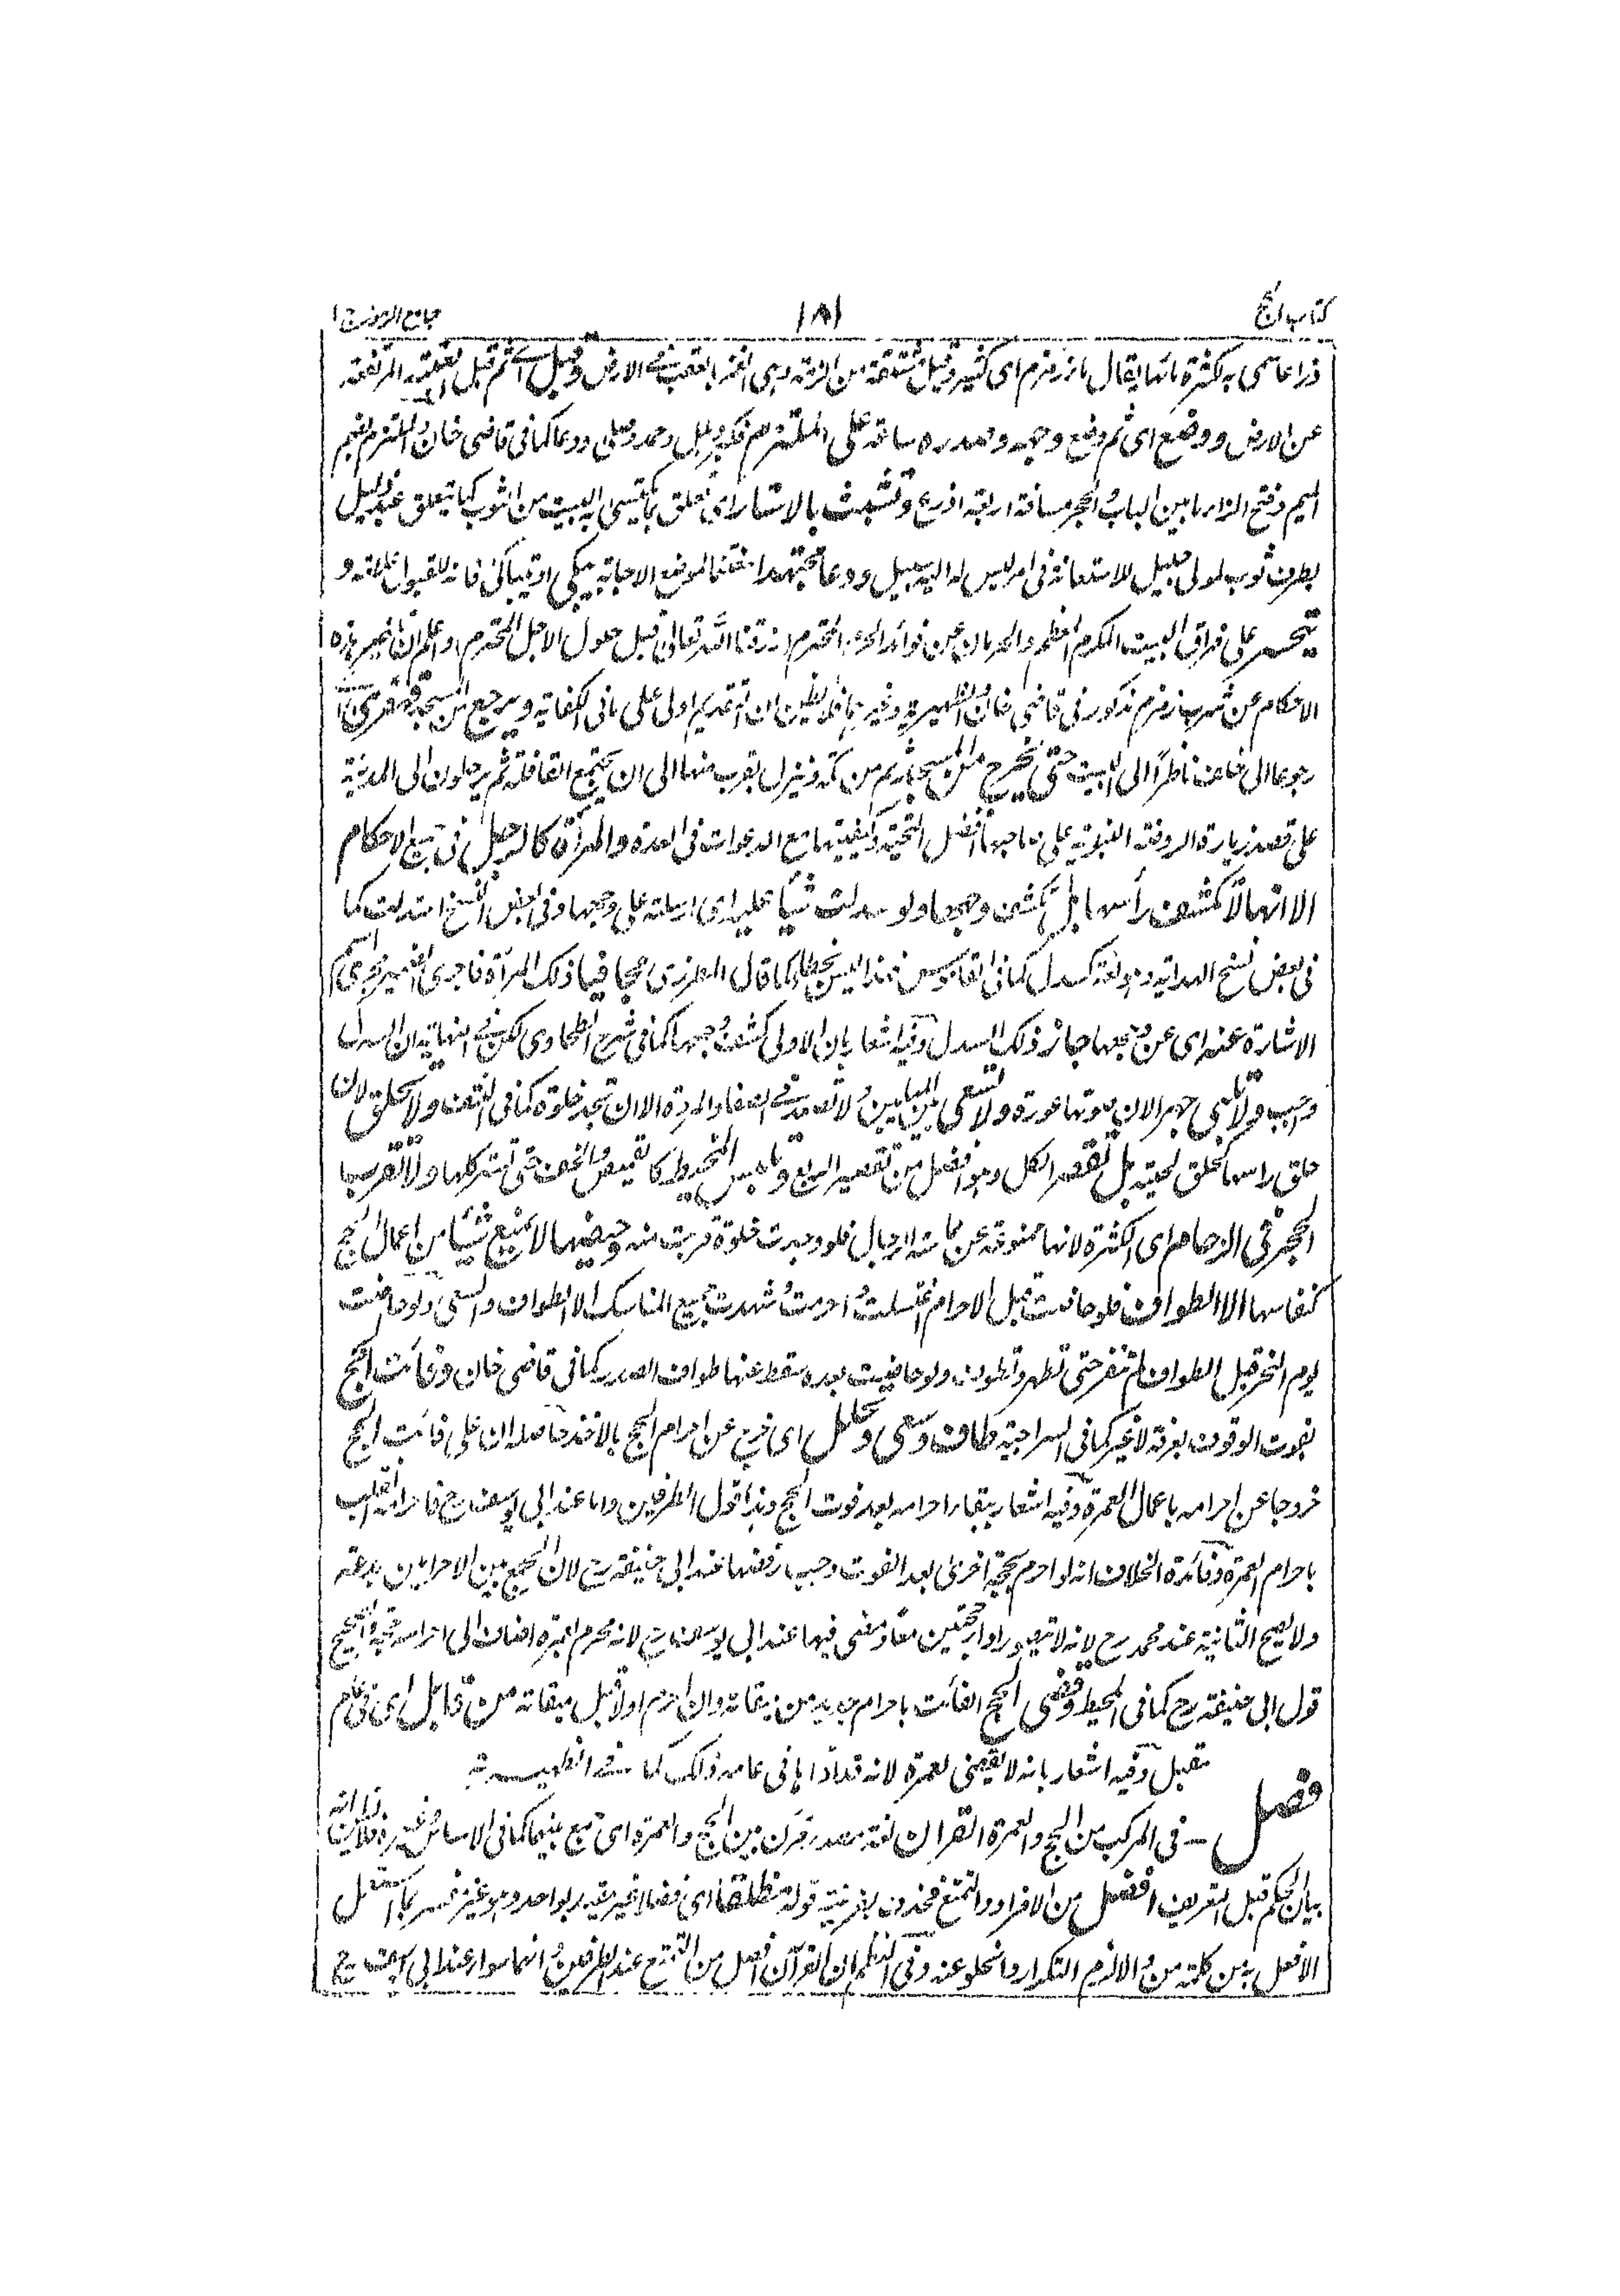 كتاب الحج ١٨١ جامع الرموز ج ١
ذراعا سمى به لكثرة مائها يقال ماء زمزم اى كثير وقيل مشتقة من الزمة وهى الغمز بالعقب فى الارض وقبل اى ثم قبل العتبة المرتفعة
عن الارض ووضع اى ثم وضع وجهه وصدره ساقه على الملتزم فكبر وهلل وحمد وصلى ودعا كما فى قاضى خان والملتزم بضم
الميم وفتح الزاء ما بين الباب والحجر مسافة اربعة اذرع وتشبث بالاستار اى تعلق بما كسى به البيت من الثوب كما يتعلق عبد ذليل
بطرف ثوب لمولى جليل للاستعانة فى امر ليس له اليه سبيل ودعا مجتهدا الموضع الاجابة يبكى او يتباكى فانه للقبول علامة و
يتحسر على فراق البيت المكرم المعظم والحرمان عن فوائد الحرم المحترم رزقنا الله تعالى قبل حلول الاجل المحترم واعلم ان تاخير هذه
الاحكام عن شرب زمزم مذكور فى قاضى خان والظهيرية وغيرهما فلا يظن ان التقديم اولى على ما فى الكفاية ويرجع من المسجد قهقرى
رجوعا الى خلف ناظرا الى البيت حتى يخرج من المسجد ثم من مكة وينزل بقرب منها الى ان يجتمع القافلة ثم يرحلون الى المدينة
على قصد زيارة الروضة النبوية على صاحبها افضل التحية وكيفيتها مع الدعوات فى العدة والمرأة كالرجل فى جميع الاحكام
الا انها لا تكشف رأسها بل تكشف وجهها ولو سدلت شيئا عليه اى ارسلته على وجهها وفى بعض النسخ استدلت كما
فى بعض نسخ الهداية وهو لغة كسدل كما فى القاموس فهذا ليس بخطاء كما قال المطرزى مجافيا ذلك المرأة فاجرى الضمير مجرى اسم
الاشارة عنه اى عن وجهها جاز ذلك السدل وفيه اشعار بان الاولى كشف وجهها كما فى شرح الطحاوى لكن فى النهاية ان السدل
واجب ولا تلبى جهرا لان صوتها عورة ولا تسعى بين الميلين ولا تصعد فى الصفا والمروة الا ان تجد خلوة كما فى التحفة ولا تحلق لان
حلق راسها كحلق لحيته بل تقصر الكل وهو افضل من تقصير الربع وتلبس المخيط كالقميص والخف حتى تستر كلها ولا تقرب
الحجر فى الزحام اى الكثرة لانها ممنوعة عن مماسة الرجال فلو وجدت خلوة قربت منه وحيضها لا يمنع شيئا من اعمال الحج
كنفاسها الا الطواف فلو حاضت قبل الاحرام اغتسلت واحرمت وشهدت جميع المناسك الا الطواف والسعى ولو حاضت
يوم النحر قبل الطواف لم تنفر حتى تطهر وتطوف ولو حاضت بعده سقط عنها طواف الصدر كما فى قاضى خان وفائت الحج
بفوت الوقوف بعرفة لا غير كما فى السراجية طاف وسعى وتحلل اى خرج عن احرام الحج بالاخذ حاصله ان على فائت الحج
خروجا عن احرامه باعمال العمرة وفيه اشعار ببقاء احرامه بعد فوت الحج وهذا قول الطرفين واما عند ابى يوسف رح فاحرامه انقلب
باحرام العمرة وفائدة الخلاف انه لو احرم بحجة اخرى بعد الفوت وجب رفضها عند ابى حنيفة رح لان الجمع بين الاحرامين بدعة
ولا يصح الثانية عند محمد رح لانه لا تعدد اداء حجتين معا ومضى فيها عند ابى يوسف رح لانه محرم بعمرة اضاف الى احرامه حجة والصحيح
قول ابى حنيفة رح كما فى المحيط وقضى الحج الفائت باحرام جديد من ميقاته وان احرم اولا قبل ميقاته من قابل اى فى عام
مقبل وفيه اشعار بانه لا يقضى لعمرة لانه قد اداها فى عامه ذلك كما فى الظهيرية
فصل فى المركب من الحج والعمرة القران لغة مصدر قرن بين الحج والعمرة اى جمع بينهما كما فى الاساس وغيره
بيان الحكم قبل التعريف افضل من الافراد والتمتع فحذف بقرينة قوله مطلقا اى فضلا غير مقيد بواحد وهو غير
الافعل به من كلمة من والا لزم التكرار وانحلو عنه وفى النظم ان القرآن افضل من التمتع عند الطرفين وانهما سواء عند ابى يوسف رح